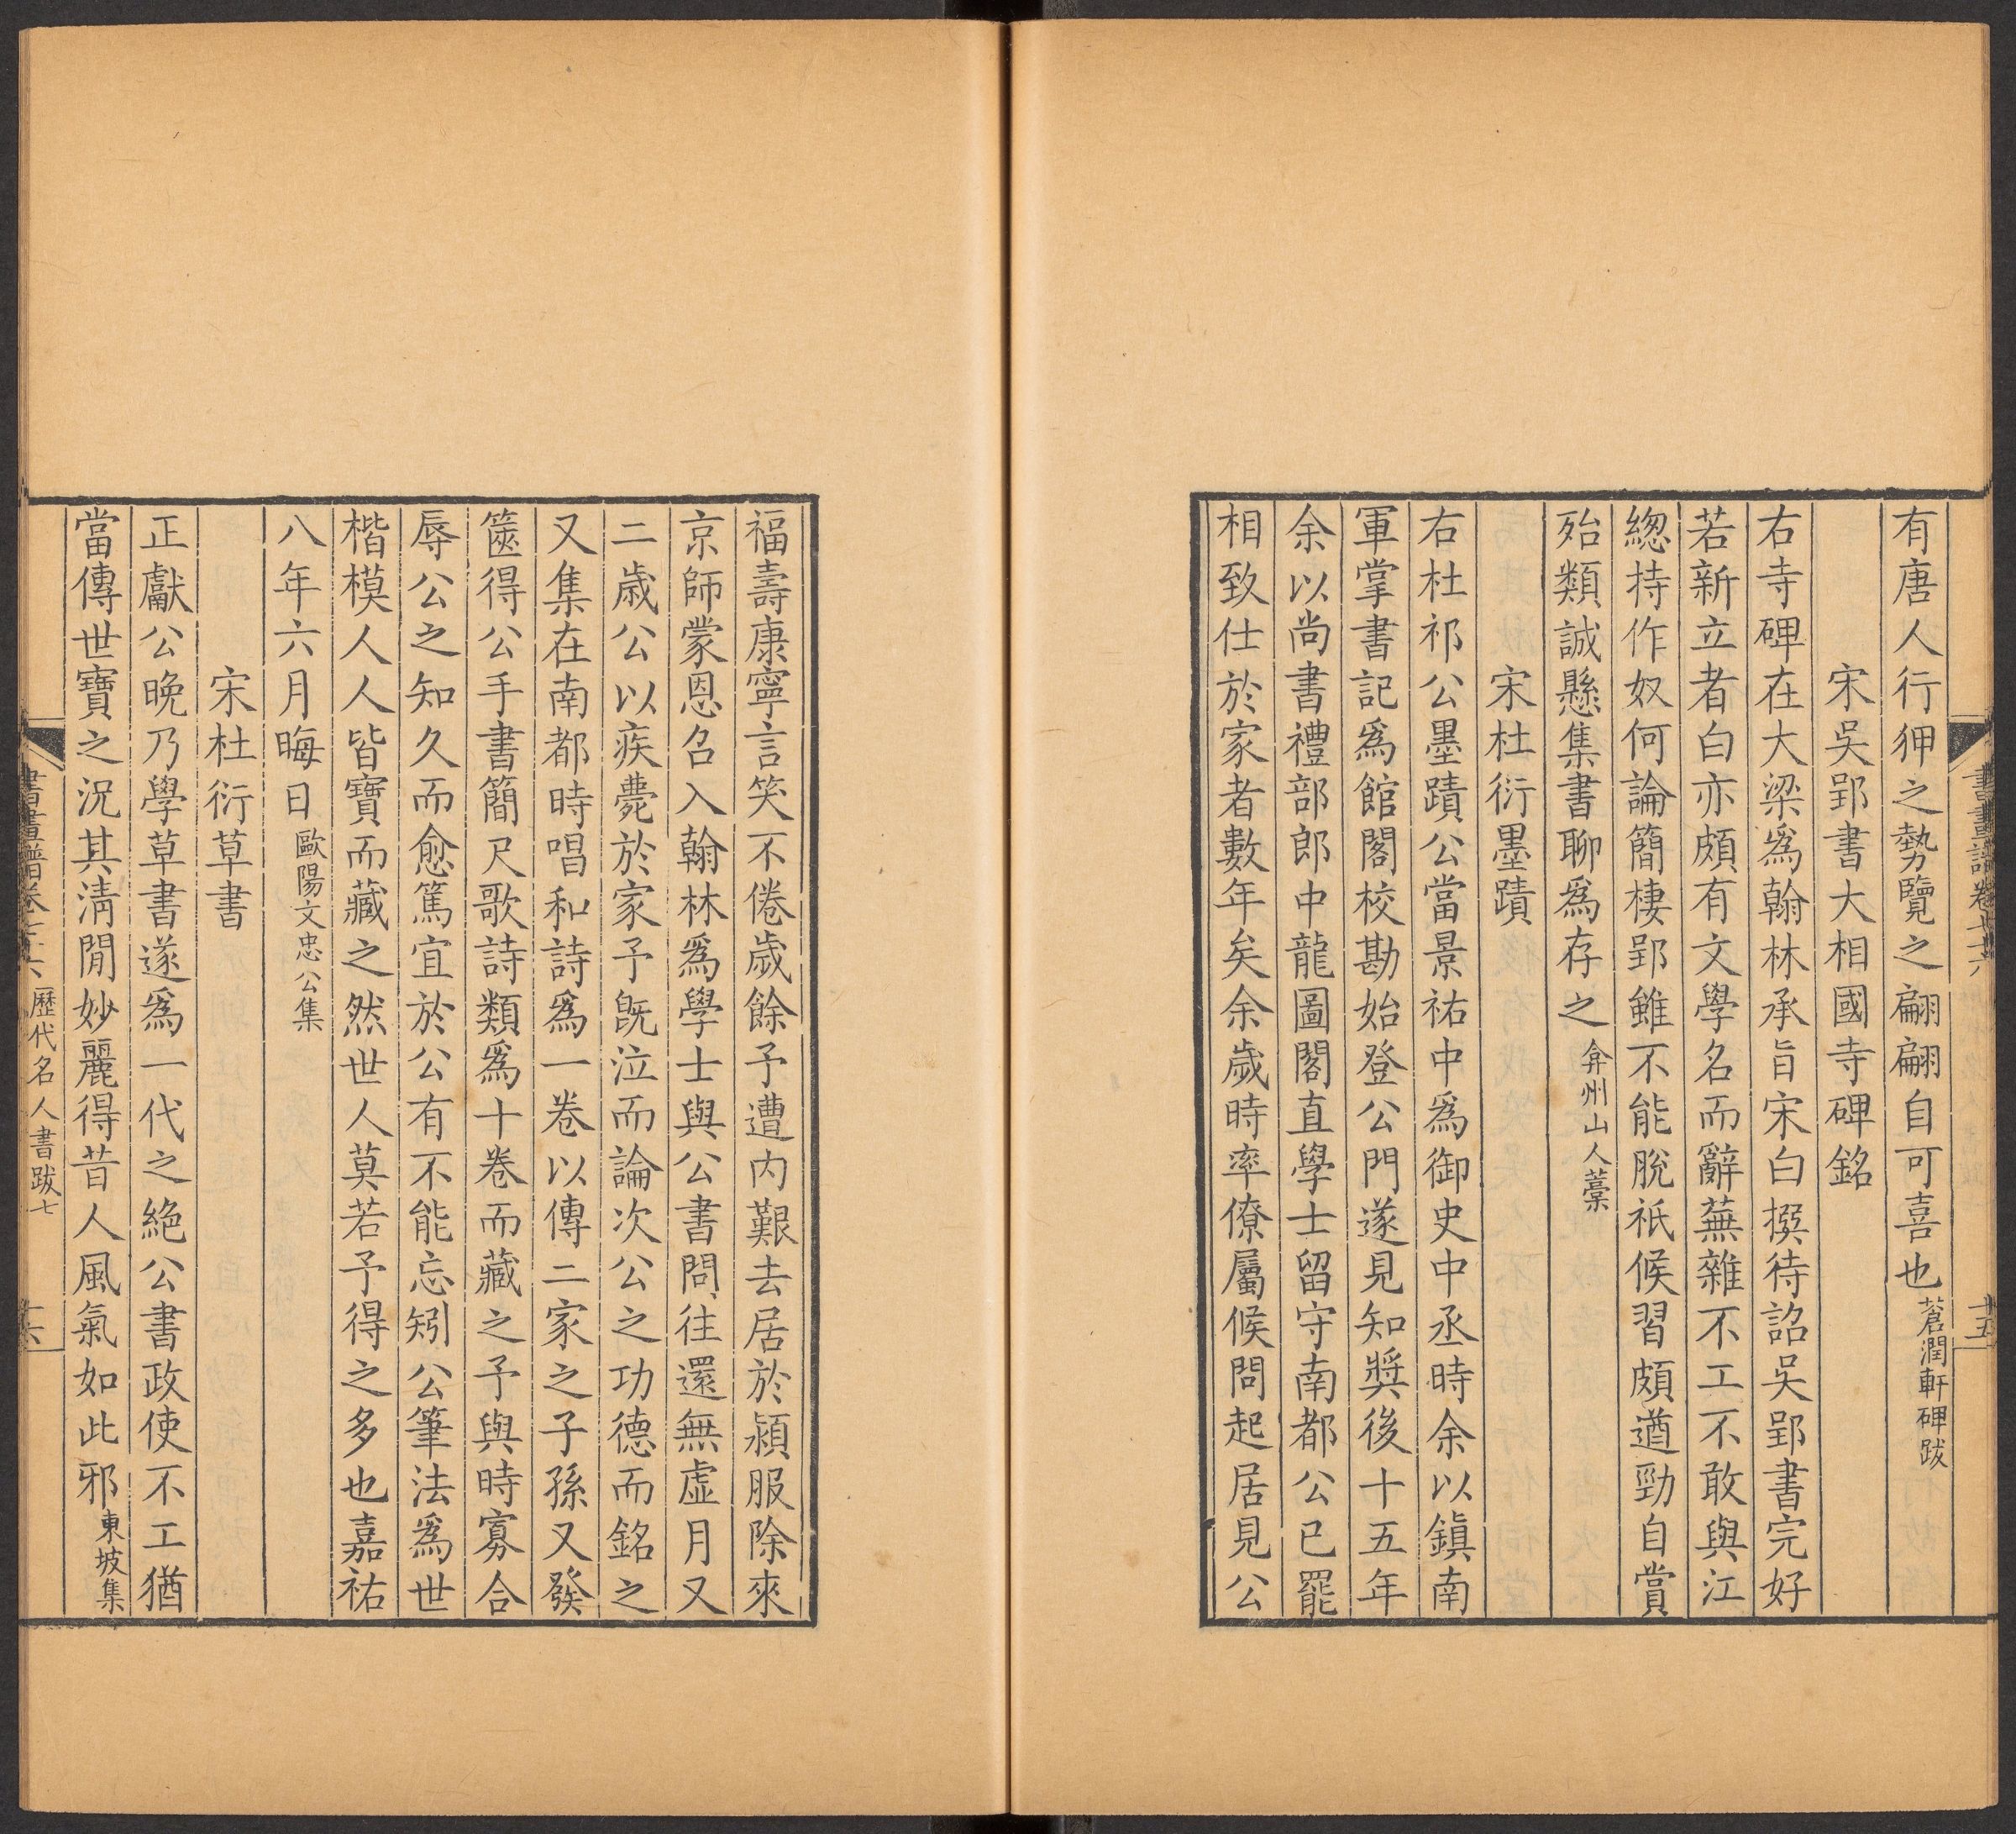 有唐人行狎之勢覽之翩翩自可喜也蒼潤軒碑跋
宋吳郢書大相國寺碑銘
右寺碑在大梁爲翰林承旨宋白撰待詔吳郢書完好
若新立者白亦頗有文學名而辭蕪雜不工不敢與江
緫持作奴何論簡棲郢雖不能脫祇候習頗遒勁自賞
殆類誠懸集書聊爲存之弇州山人藁
宋杜衍墨蹟
右杜祁公墨蹟公當景祐中爲御史中丞時余以鎮南
軍掌書記爲館閣校勘始登公門遂見知奬後十五年
余以尚書禮部郎中龍圖閣直學士留守南都公已罷
相致仕於家者數年矣余歲時率僚屬候問起居見公
福壽康寧言笑不倦歲餘予遭内艱去居於潁服除來
京師蒙恩召入翰林爲學士與公書問往還無虛月又
二歲公以疾薨於家予旣泣而論次公之功德而銘之
又集在南都時唱和詩爲一卷以傳二家之子孫又發
篋得公手書簡尺歌詩類爲十卷而藏之予與時寡合
辱公之知久而愈篤宜於公有不能忘矧公筆法爲世
楷模人人皆寶而藏之然世人莫若予得之多也嘉祐
八年六月晦日歐陽文忠公集
宋杜衍草書
正獻公晚乃學草書遂爲一代之絶公書政使不工猶
當傳世寶之況其清閒妙麗得昔人風氣如此邪東坡集
書畫譜卷七十六 歷代名人書跋七 十六